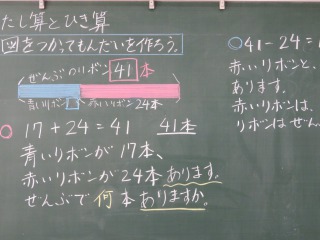 たし算とひき算
図をつかってもんだいを作ろう。
ぜんぶのリボン 41本
青いリボン 赤いリボン24本
○ 17+24=41 41本
青いリボンが17本、
赤いリボンが24本あります。
ぜんぶで何本ありますか。
○41-24=
赤いリボンと、
あります。
赤いリボンは、
リボンはぜん